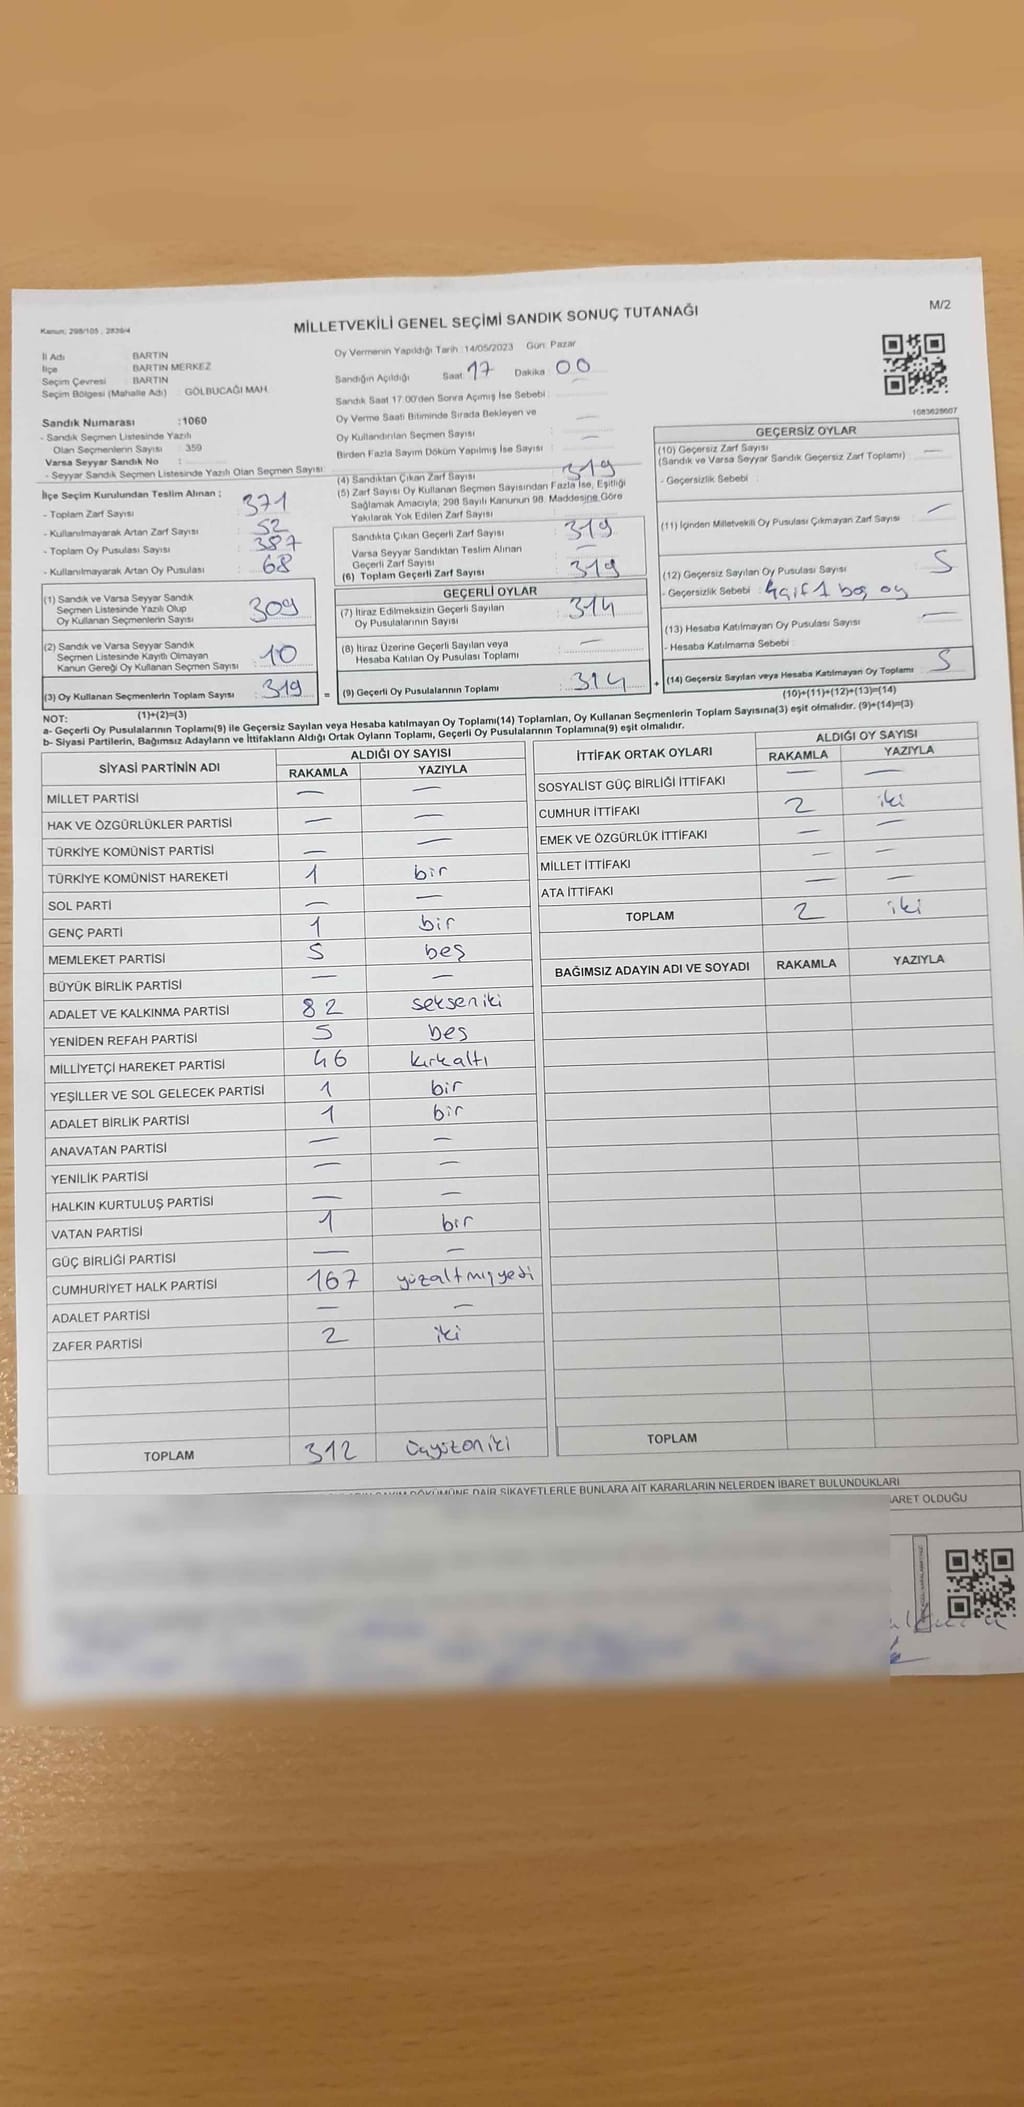 Kanun; 298/105 ; 2839/4
MİLLETVEKİLİ GENEL SEÇİMİ SANDIK SONUÇ TUTANAĞI
M/2
İl Adı BARTIN
İlçe BARTIN MERKEZ
Seçim Çevresi BARTIN
Seçim Bölgesi (Mahalle Adı) : GÖLBUCAĞI MAH.
Sandık Numarası :1060
- Sandık Seçmen Listesinde Yazılı
Olan Seçmenlerin Sayısı : 359
Varsa Seyyar Sandık No :
- Seyyar Sandık Seçmen Listesinde Yazılı Olan Seçmen Sayısı:
İlçe Seçim Kurulundan Teslim Alınan ;
- Toplam Zarf Sayısı : 371
- Kullanılmayarak Artan Zarf Sayısı : 52
- Toplam Oy Pusulası Sayısı : 387
- Kullanılmayarak Artan Oy Pusulası : 68
(1) Sandık ve Varsa Seyyar Sandık
Seçmen Listesinde Yazılı Olup
Oy Kullanan Seçmenlerin Sayısı : 309
(2) Sandık ve Varsa Seyyar Sandık
Seçmen Listesinde Kayıtlı Olmayan
Kanun Gereği Oy Kullanan Seçmen Sayısı : 10
(3) Oy Kullanan Seçmenlerin Toplam Sayısı : 319
(1)+(2)=(3)
Oy Vermenin Yapıldığı Tarih :14/05/2023 Gün: Pazar
Sandığın Açıldığı Saat 17 Dakika 00
Sandık Saat 17:00'den Sonra Açımış İse Sebebi :
Oy Verme Saati Bitiminde Sırada Bekleyen ve
Oy Kullandırılan Seçmen Sayısı : —
Birden Fazla Sayım Döküm Yapılmış İse Sayısı : —
(4) Sandıktan Çıkan Zarf Sayısı : 319
(5) Zarf Sayısı Oy Kullanan Seçmen Sayısından Fazla İse, Eşitliği
Sağlamak Amacıyla; 298 Sayılı Kanunun 98. Maddesine Göre
Yakılarak Yok Edilen Zarf Sayısı
Sandıkta Çıkan Geçerli Zarf Sayısı : 319
Varsa Seyyar Sandıktan Teslim Alınan
Geçerli Zarf Sayısı : —
(6) Toplam Geçerli Zarf Sayısı : 319
GEÇERLİ OYLAR
(7) İtiraz Edilmeksizin Geçerli Sayılan
Oy Pusulalarının Sayısı : 314
(8) İtiraz Üzerine Geçerli Sayılan veya
Hesaba Katılan Oy Pusulası Toplamı : —
= (9) Geçerli Oy Pusulalarının Toplamı : 314 +
1083628607
GEÇERSİZ OYLAR
(10) Geçersiz Zarf Sayısı : —
(Sandık ve Varsa Seyyar Sandık Geçersiz Zarf Toplamı)
- Geçersizlik Sebebi :
(11) İçinden Milletvekili Oy Pusulası Çıkmayan Zarf Sayısı : —
(12) Geçersiz Sayılan Oy Pusulası Sayısı : 5
- Geçersizlik Sebebi : 4 çif 1 boş oy
(13) Hesaba Katılmayan Oy Pusulası Sayısı : —
- Hesaba Katılmama Sebebi :
(14) Geçersiz Sayılan veya Hesaba Katılmayan Oy Toplamı : 5
(10)+(11)+(12)+(13)=(14)
NOT:
a- Geçerli Oy Pusulalarının Toplamı(9) ile Geçersiz Sayılan veya Hesaba katılmayan Oy Toplamı(14) Toplamları, Oy Kullanan Seçmenlerin Toplam Sayısına(3) eşit olmalıdır. (9)+(14)=(3)
b- Siyasi Partilerin, Bağımsız Adayların ve İttifakların Aldığı Ortak Oyların Toplamı, Geçerli Oy Pusulalarının Toplamına(9) eşit olmalıdır.
SİYASİ PARTİNİN ADI ALDIĞI OY SAYISI
RAKAMLA YAZIYLA
MİLLET PARTİSİ — —
HAK VE ÖZGÜRLÜKLER PARTİSİ — —
TÜRKİYE KOMÜNİST PARTİSİ — —
TÜRKİYE KOMÜNİST HAREKETİ 1 bir
SOL PARTİ — —
GENÇ PARTİ 1 bir
MEMLEKET PARTİSİ 5 beş
BÜYÜK BİRLİK PARTİSİ — —
ADALET VE KALKINMA PARTİSİ 82 sekseniki
YENİDEN REFAH PARTİSİ 5 beş
MİLLİYETÇİ HAREKET PARTİSİ 46 kırkaltı
YEŞİLLER VE SOL GELECEK PARTİSİ 1 bir
ADALET BİRLİK PARTİSİ 1 bir
ANAVATAN PARTİSİ — —
YENİLİK PARTİSİ — —
HALKIN KURTULUŞ PARTİSİ — —
VATAN PARTİSİ 1 bir
GÜÇ BİRLİĞİ PARTİSİ — —
CUMHURİYET HALK PARTİSİ 167 yüzaltmışyedi
ADALET PARTİSİ — —
ZAFER PARTİSİ 2 iki
TOPLAM 312 üçyüzoniki
İTTİFAK ORTAK OYLARI ALDIĞI OY SAYISI
RAKAMLA YAZIYLA
SOSYALİST GÜÇ BİRLİĞİ İTTİFAKI — —
CUMHUR İTTİFAKI 2 iki
EMEK VE ÖZGÜRLÜK İTTİFAKI — —
MİLLET İTTİFAKI — —
ATA İTTİFAKI — —
TOPLAM 2 iki
BAĞIMSIZ ADAYIN ADI VE SOYADI RAKAMLA YAZIYLA
TOPLAM
DÖKÜMÜNE DAİR ŞİKAYETLERLE BUNLARA AİT KARARLARIN NELERDEN İBARET BULUNDUKLARI
OLDUĞU